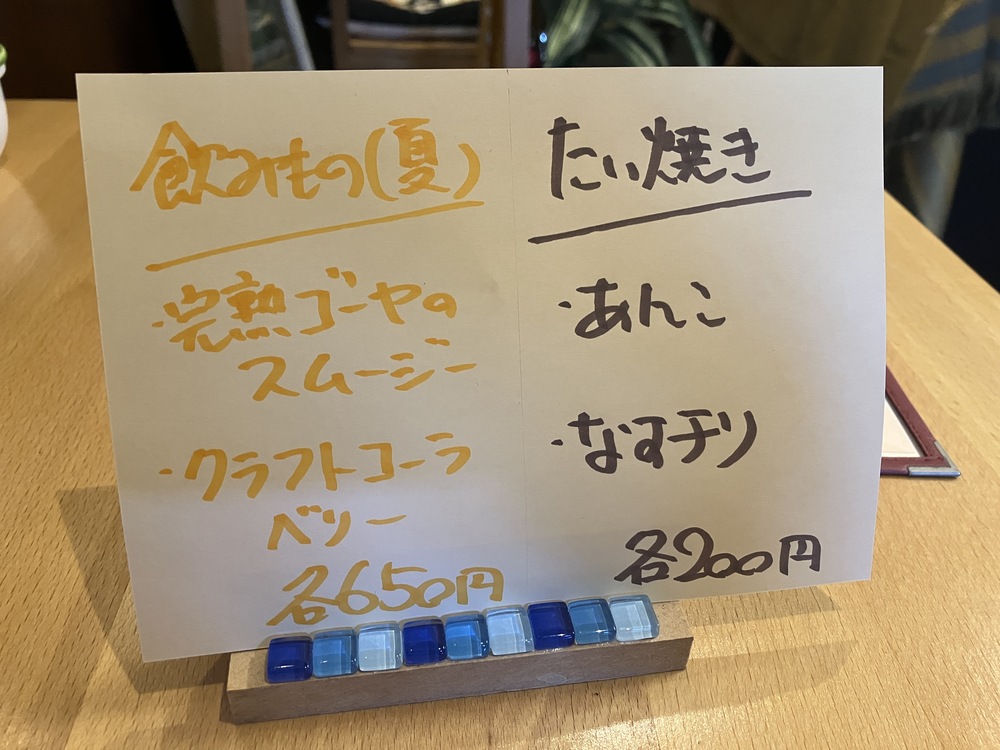 飲みもの(夏)
・完熟ゴーヤの
スムージー
・クラフトコーラ
ベリー
各650円
たい焼き
・あんこ
・なすチリ
各200円